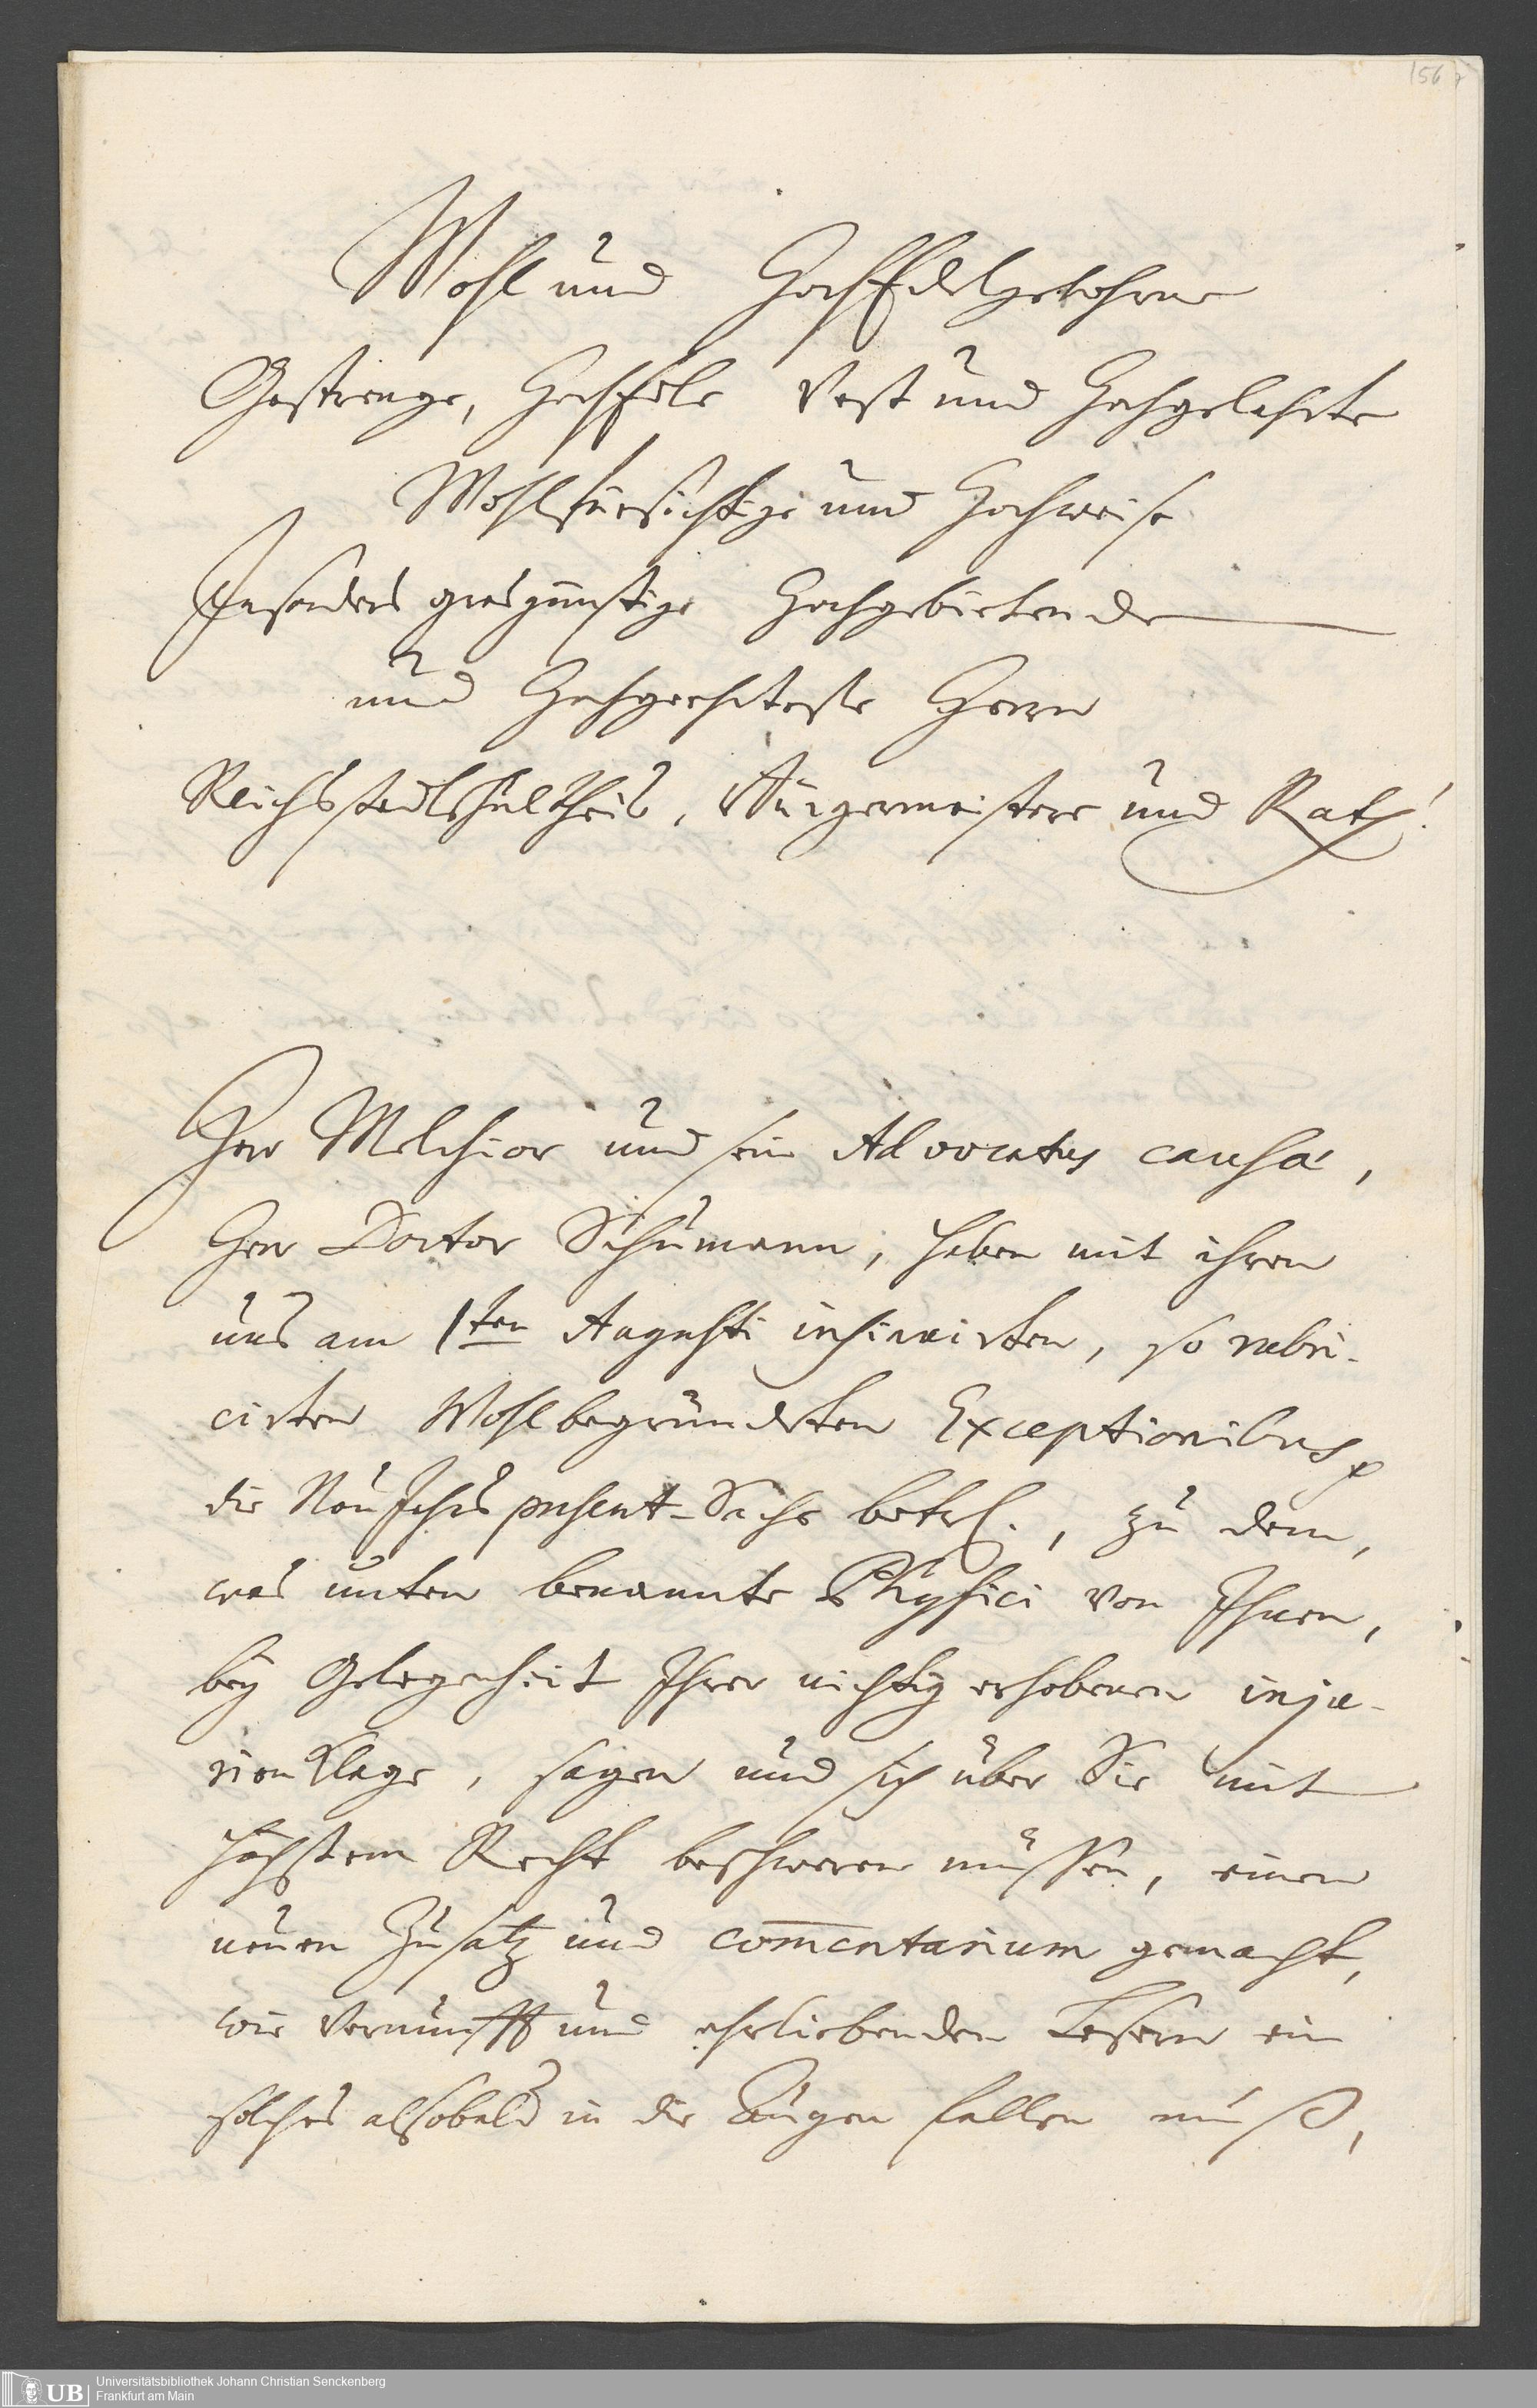 156
Wohl und HochEdelgebohrne
Gestrenge, HochEdle Vest und Hochgelahrte
Wohlfürsichtige und Hochweise
Insonders grosgünstige Hochgebietende
und Hochgeehrteste Herrn
ReichsstadtSchultheis, Bürgermeistere und Rath!
Herr Melchior und sein Advocatus causä,
Herr Doctor Schumann, haben mit ihren
uns am 1ten Augusti insinuirten, so rubri-
cirten Wohlbegründeten Exceptionibus p
die NeuJahrspresent-Sache betrf., zu dem,
was unten benannte Physici von Ihnen,
bey Gelegenheit Ihrer nichtig erhobenen inju-
rienKlage, sagen und sich über Sie mit
höchstem Recht beschweren müssen, einen
neuen Zusatz und com̅entarium gemacht,
wie Vernunfft und ehrliebenden Lesern ein
solches alsobald in die Augen fallen muß,
UB
Universitätsbibliothek Johann Christian Senckenberg
Frankfurt am Main